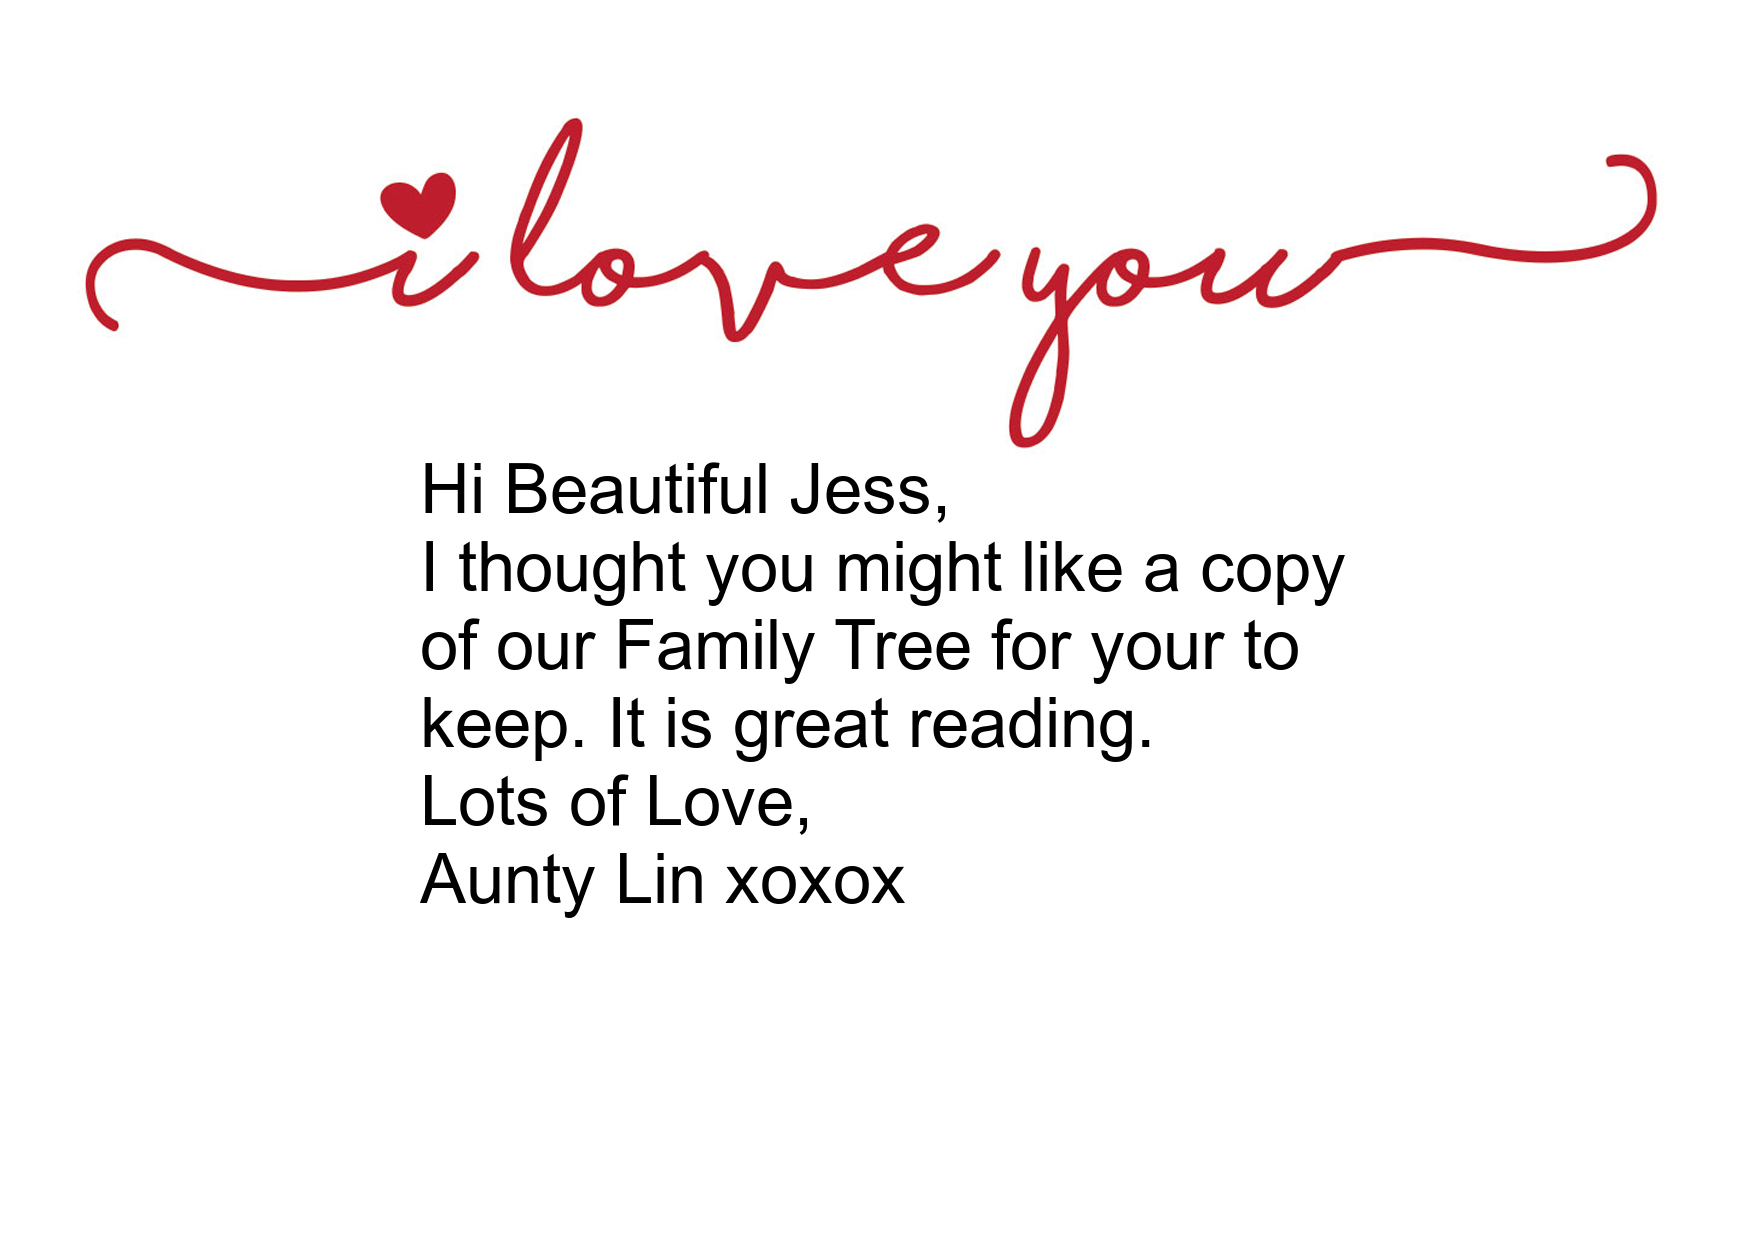 i love you
Hi Beautiful Jess,
I thought you might like a copy
of our Family Tree for your to
keep. It is great reading.
Lots of Love,
Aunty Lin xoxox